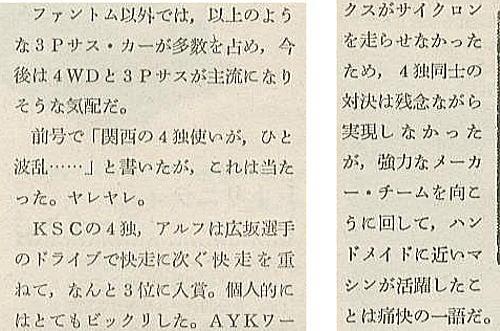 ファントム以外では，以上のよう
な３Ｐサス・カーが多数を占め，今
後は４ＷＤと３Ｐサスが主流になり
そうな気配だ。
前号で「関西の４独使いが，ひと
波乱……」と書いたが，これは当た
った。ヤレヤレ。
ＫＳＣの４独，アルフは広坂選手
のドライブで快走に次ぐ快走を重
ねて，なんと３位に入賞。個人的に
はとてもビックリした。ＡＹＫワー
クスがサイクロン
を走らせなかった
ため，４独同士の
対決は残念ながら
実現しなかった
が，強力なメーカ
ー・チームを向こ
うに回して，ハン
ドメイドに近いマ
シンが活躍したこ
とは痛快の一語だ。